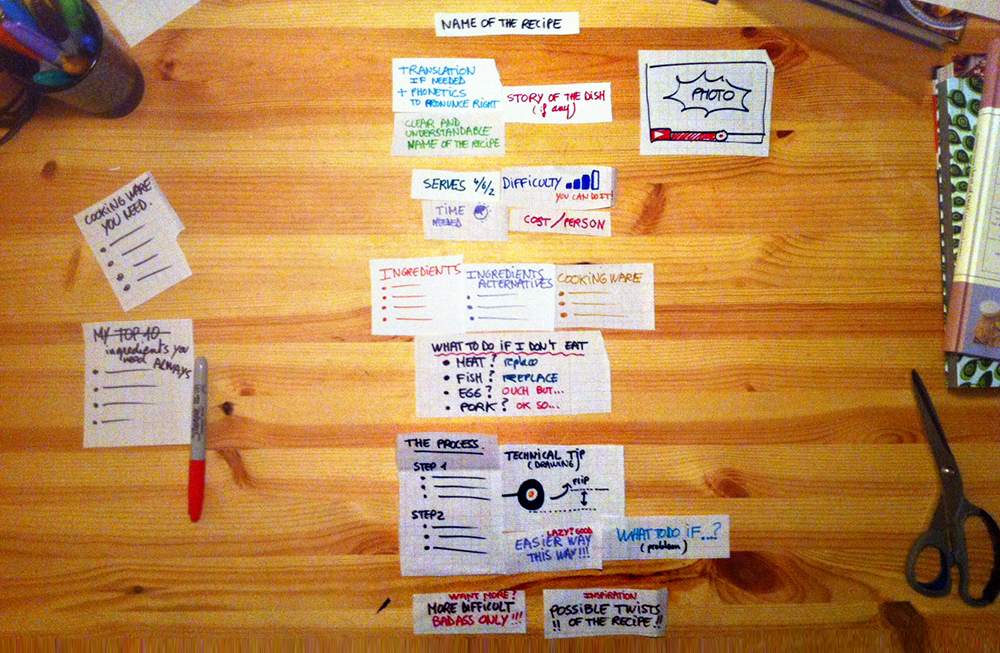 NAME OF THE RECIPE
TRANSLATION
IF NEEDED
+ PHONETICS
TO PRONUNCE RIGHT
STORY OF THE DISH
(if any)
CLEAR AND
UNDERSTANDABLE
NAME OF THE RECIPE
PHOTO
SERVES 4/6/2
DIFFICULTY
YOU CAN DO IT!
TIME
NEEDED
COST/PERSON
COOKING WARE
YOU NEED.
INGREDIENTS
INGREDIENTS
ALTERNATIVES
COOKING WARE
MY TOP 10
ingredients you
need ALWAYS
WHAT TO DO IF I DON'T EAT
• MEAT? replace
• FISH? REPLACE
• EGG? OUCH BUT...
• PORK? OK SO...
THE PROCESS.
STEP 1
STEP 2
TECHNICAL TIP
(DRAWING)
FLIP
LAZY? GOOD
EASIER WAY
THIS WAY!!!
WHAT TO DO IF...?
(problem)
WANT MORE?
MORE DIFFICULT
BADASS ONLY!!!
INSPIRATION
POSSIBLE TWISTS
!! OF THE RECIPE !!
Sharpie